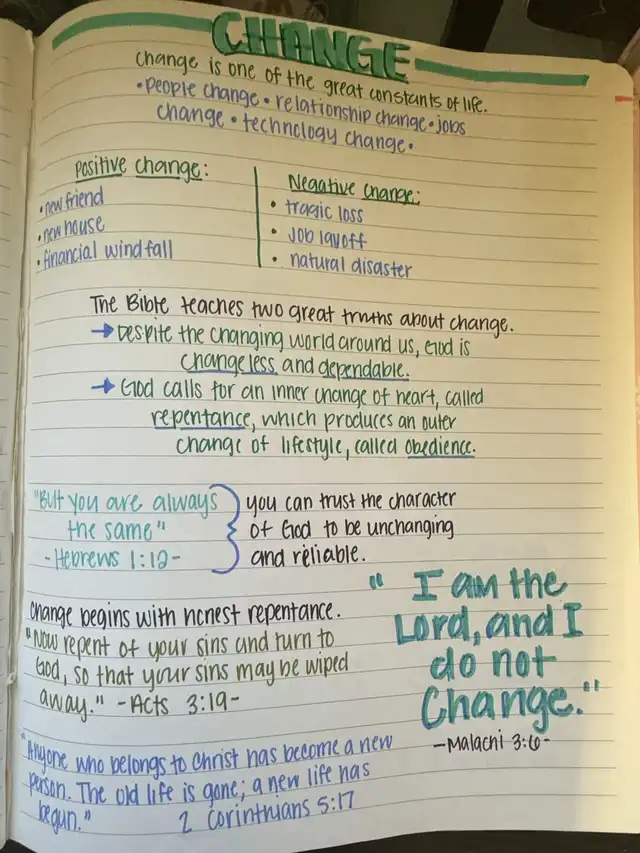 CHANGE
Change is one of the great constants of life.
•People change • relationship change • jobs
change • technology change •
Positive change:
• new friend
• new house
• financial windfall
Negative change:
• tragic loss
• Job layoff
• natural disaster
The Bible teaches two great truths about change.
→ Despite the changing world around us, God is
changeless and dependable.
→ God calls for an inner change of heart, called
repentance, which produces an outer
change of lifestyle, called obedience.
"But you are always
the same"
-Hebrews 1:12-
you can trust the character
of God to be unchanging
and reliable.
Change begins with honest repentance.
"Now repent of your sins and turn to
God, so that your sins may be wiped
away." -Acts 3:19-
" I am the
Lord, and I
do not
Change."
-Malachi 3:6-
"Anyone who belongs to Christ has become a new
person. The old life is gone; a new life has
begun." 2 Corinthians 5:17